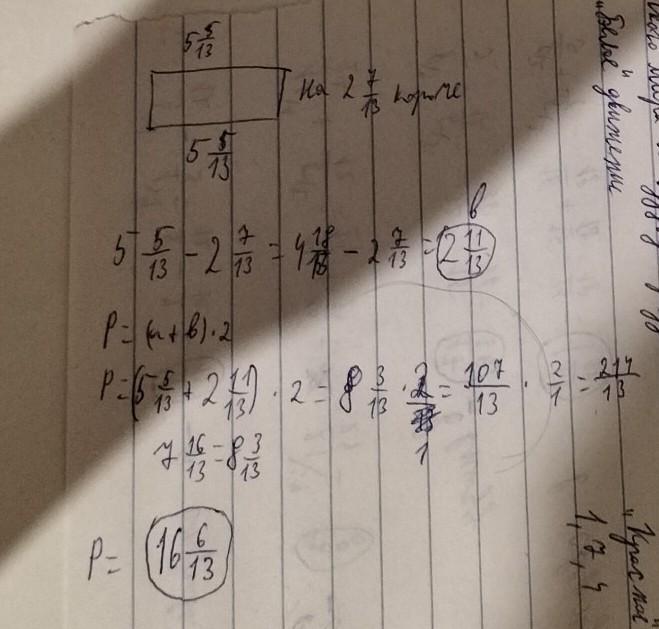 5 5/13
На 2 7/13 короче
5 5/13
в
5 5/13 - 2 7/13 = 4 18/13 - 2 7/13 = 2 11/13
P = (a + в) · 2
P = (5 5/13 + 2 11/13) · 2 = 8 3/13 · 2/1 = 107/13 · 2/1 = 214/13
7 16/13 = 8 3/13
P = 16 6/13
"Белое" движение
"Красное"
1, 7, 4